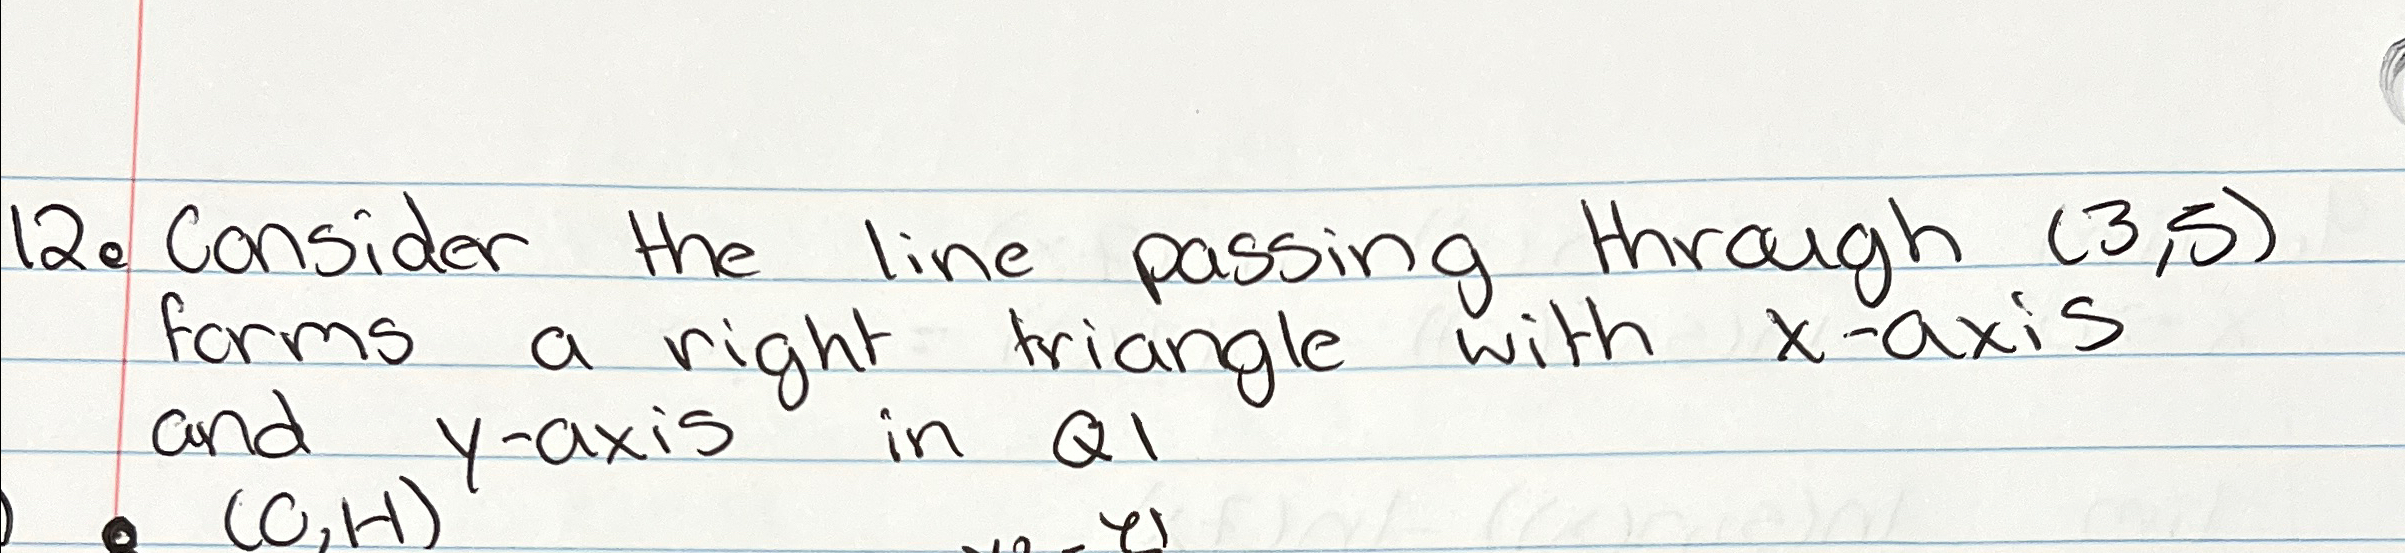 12. Consider the line passing through (3,5)
forms a right triangle with x-axis
and y-axis in Q1
(0,H)